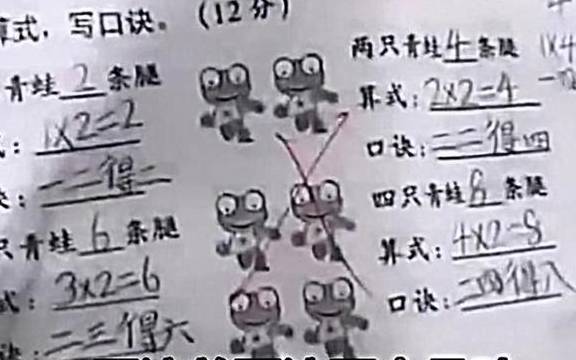 算式，写口诀。（12分）
青蛙2条腿
1×2=2
一二得二
只青蛙6条腿
式：3×2=6
二三得六
两只青蛙4条腿
算式：2×2=4
口诀：二二得四
四只青蛙8条腿
算式：4×2=8
口诀：二四得八
1×4